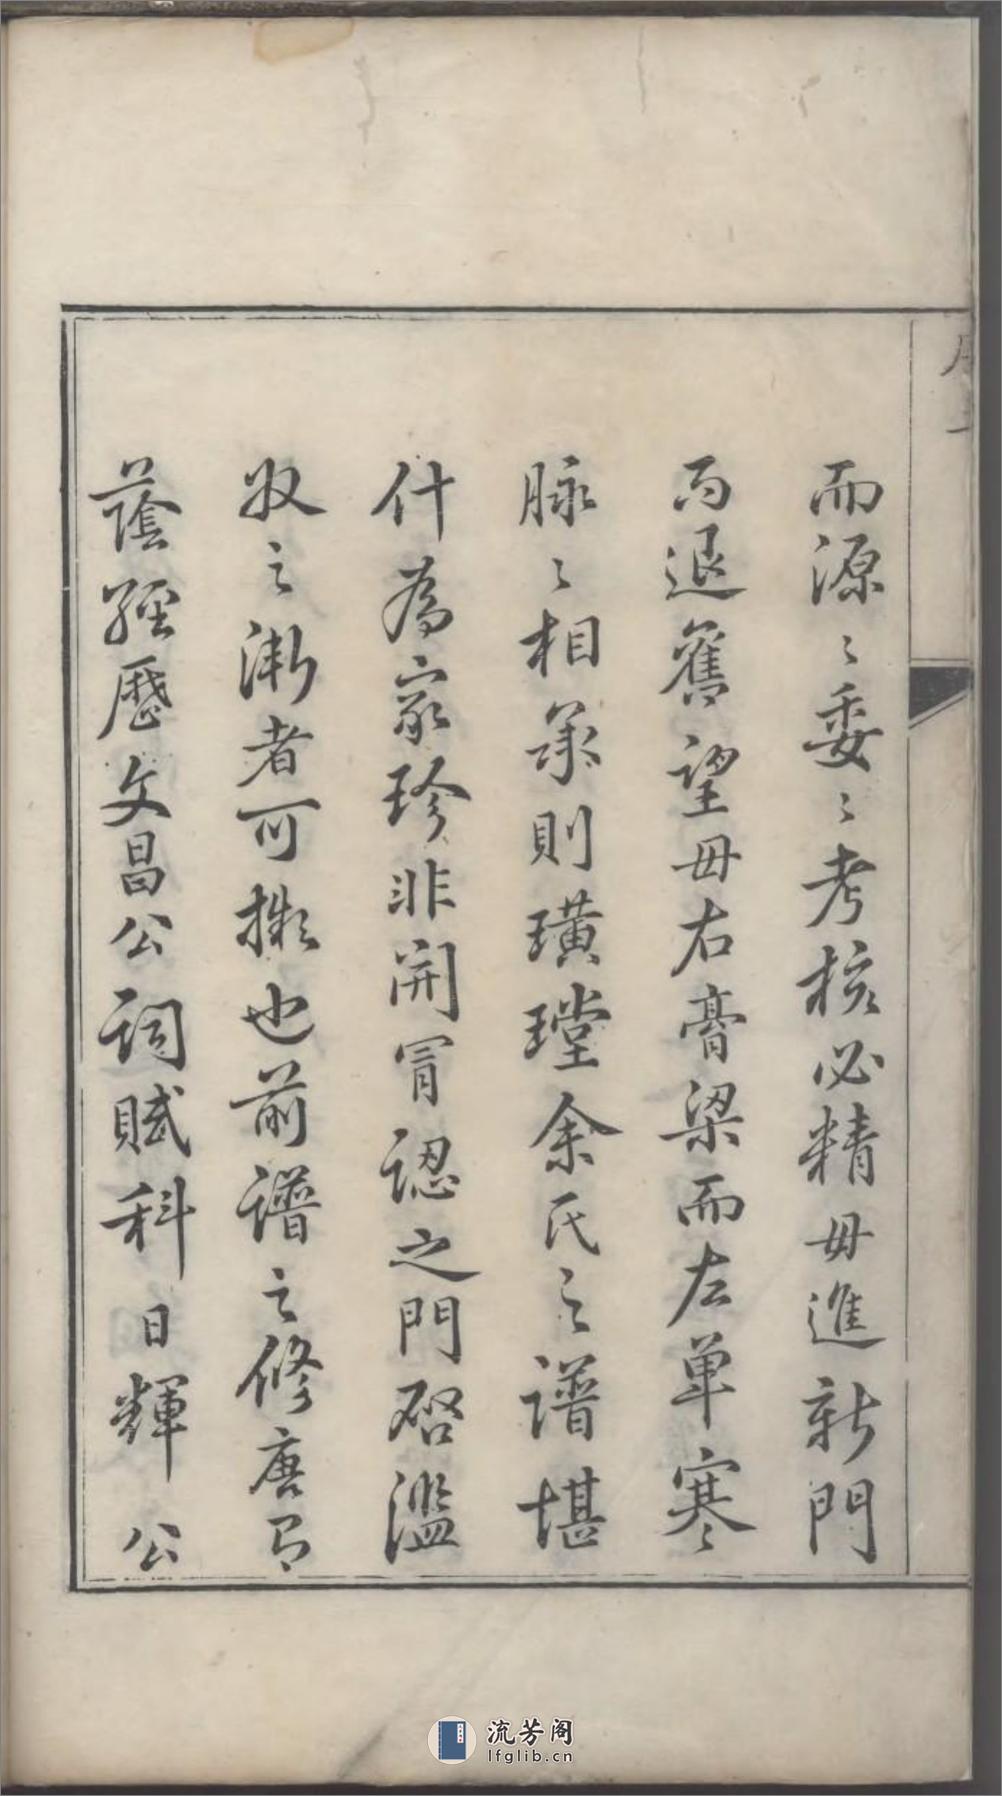 而源〻委〻考核必精毋進新門
而退舊望毋右膏粱而左單寒
脉〻相承則璜瑝余氏之譜堪
什為家珍非開冒認之門啓濫
收之漸者可擬也前譜之修唐有
蔭經歷文昌公詞賦科日輝公
流芳阁
lfglib.cn